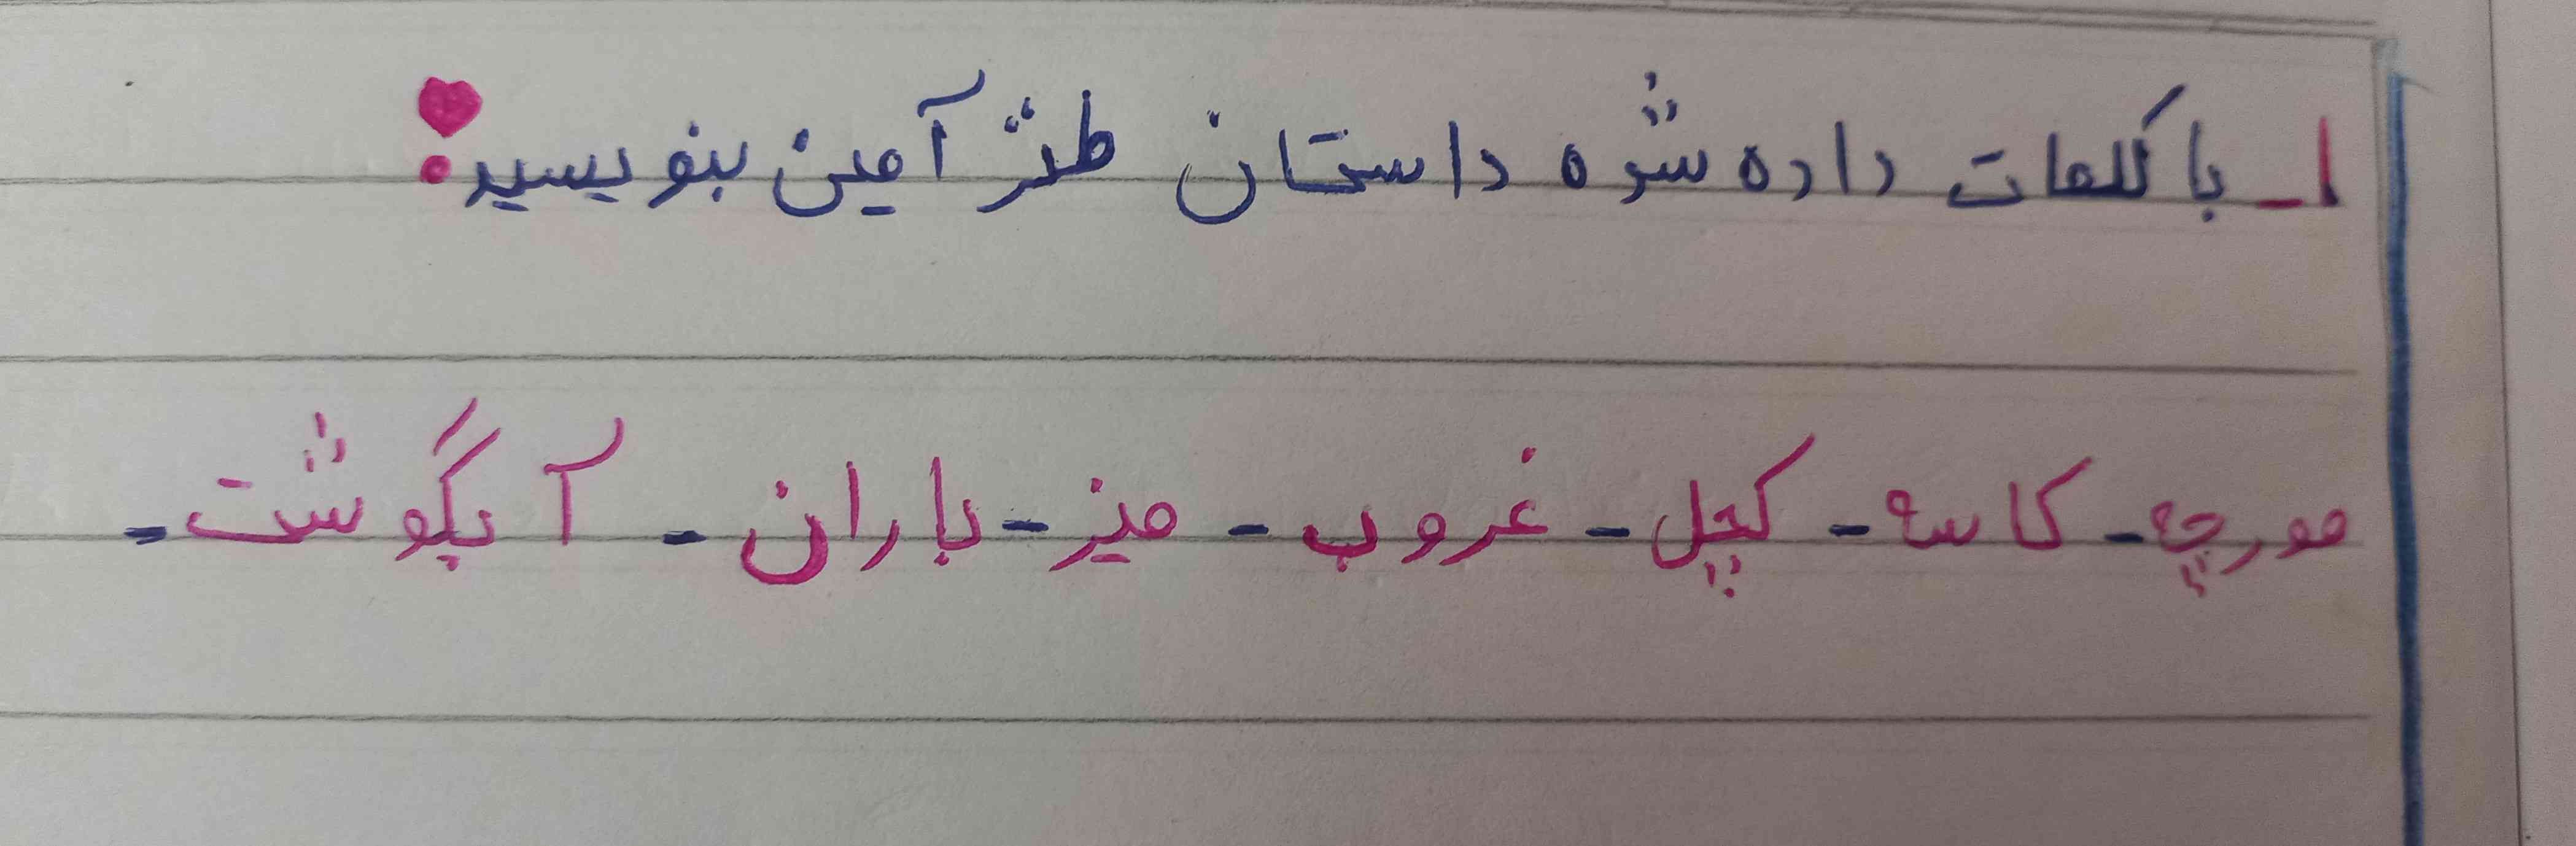 ۱_ با کلمات داده شده داستان طنز آمیز بنویسید!
مورچه - کاسه - کچل - غروب - میز - باران - آبگوشت -